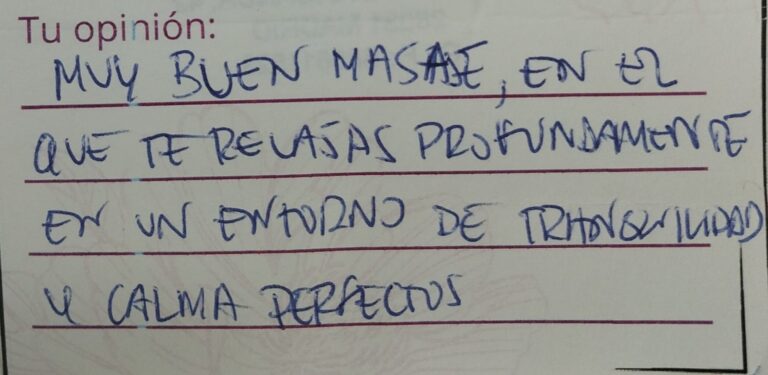 Tu opinión:
MUY BUEN MASAJE, EN EL
QUE TE RELAJAS PROFUNDAMENTE
EN UN ENTORNO DE TRANQUILIDAD
Y CALMA PERFECTOS